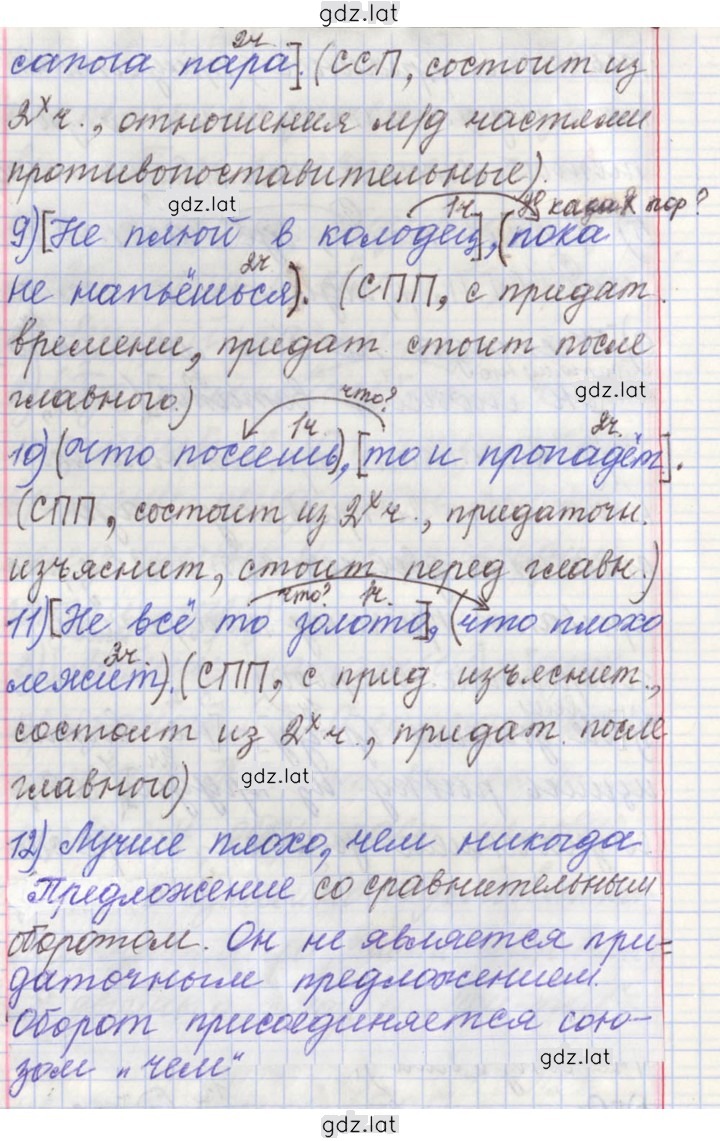 gdz.lat
2ч.
сапога пара]. (ССП, состоит из
2ˣ ч., отношения м/д частями
противопоставительные).
gdz.lat
1ч. до каких пор?
9) [Не плюй в колодец], (пока
2ч
не напьёшься). (СПП, с придат.
времени, придат стоит после
главного.)
gdz.lat
что?
1ч. 2ч.
10) (Что посеешь), [то и пропадёт].
(СПП, состоит из 2ˣ ч., придаточн.
изъяснит, стоит перед главн.)
что? 1ч.
11) [Не всё то золото], (что плохо
2ч.
лежит). (СПП, с прид. изъяснит.,
состоит из 2ˣ ч., придат. после
главного)
gdz.lat
12) Лучше плохо, чем никогда
Предложение со сравнительным
оборотом. Он не является при-
даточным предложением.
Оборот присоединяется сою-
зом „чем"
gdz.lat
gdz.lat